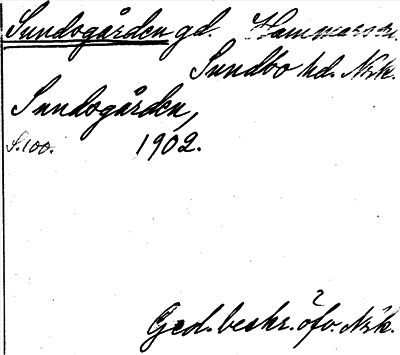 Sundogården gd. Hammars sn.
Sundbo hd. Nrk.
Sundogården,
S. 100. 1902.
Ged. beskr. öfv. Nrk.